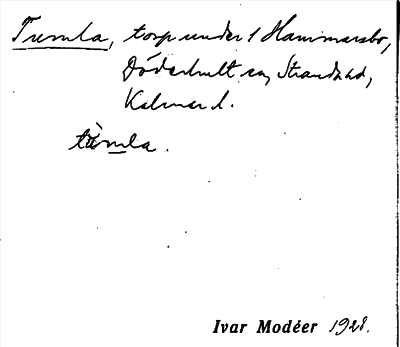 Tumla, torp under 1 Hammarsbo,
Döderhult sn, Stranda hd,
Kalmar l.
tùmla.
Ivar Modéer 1928.